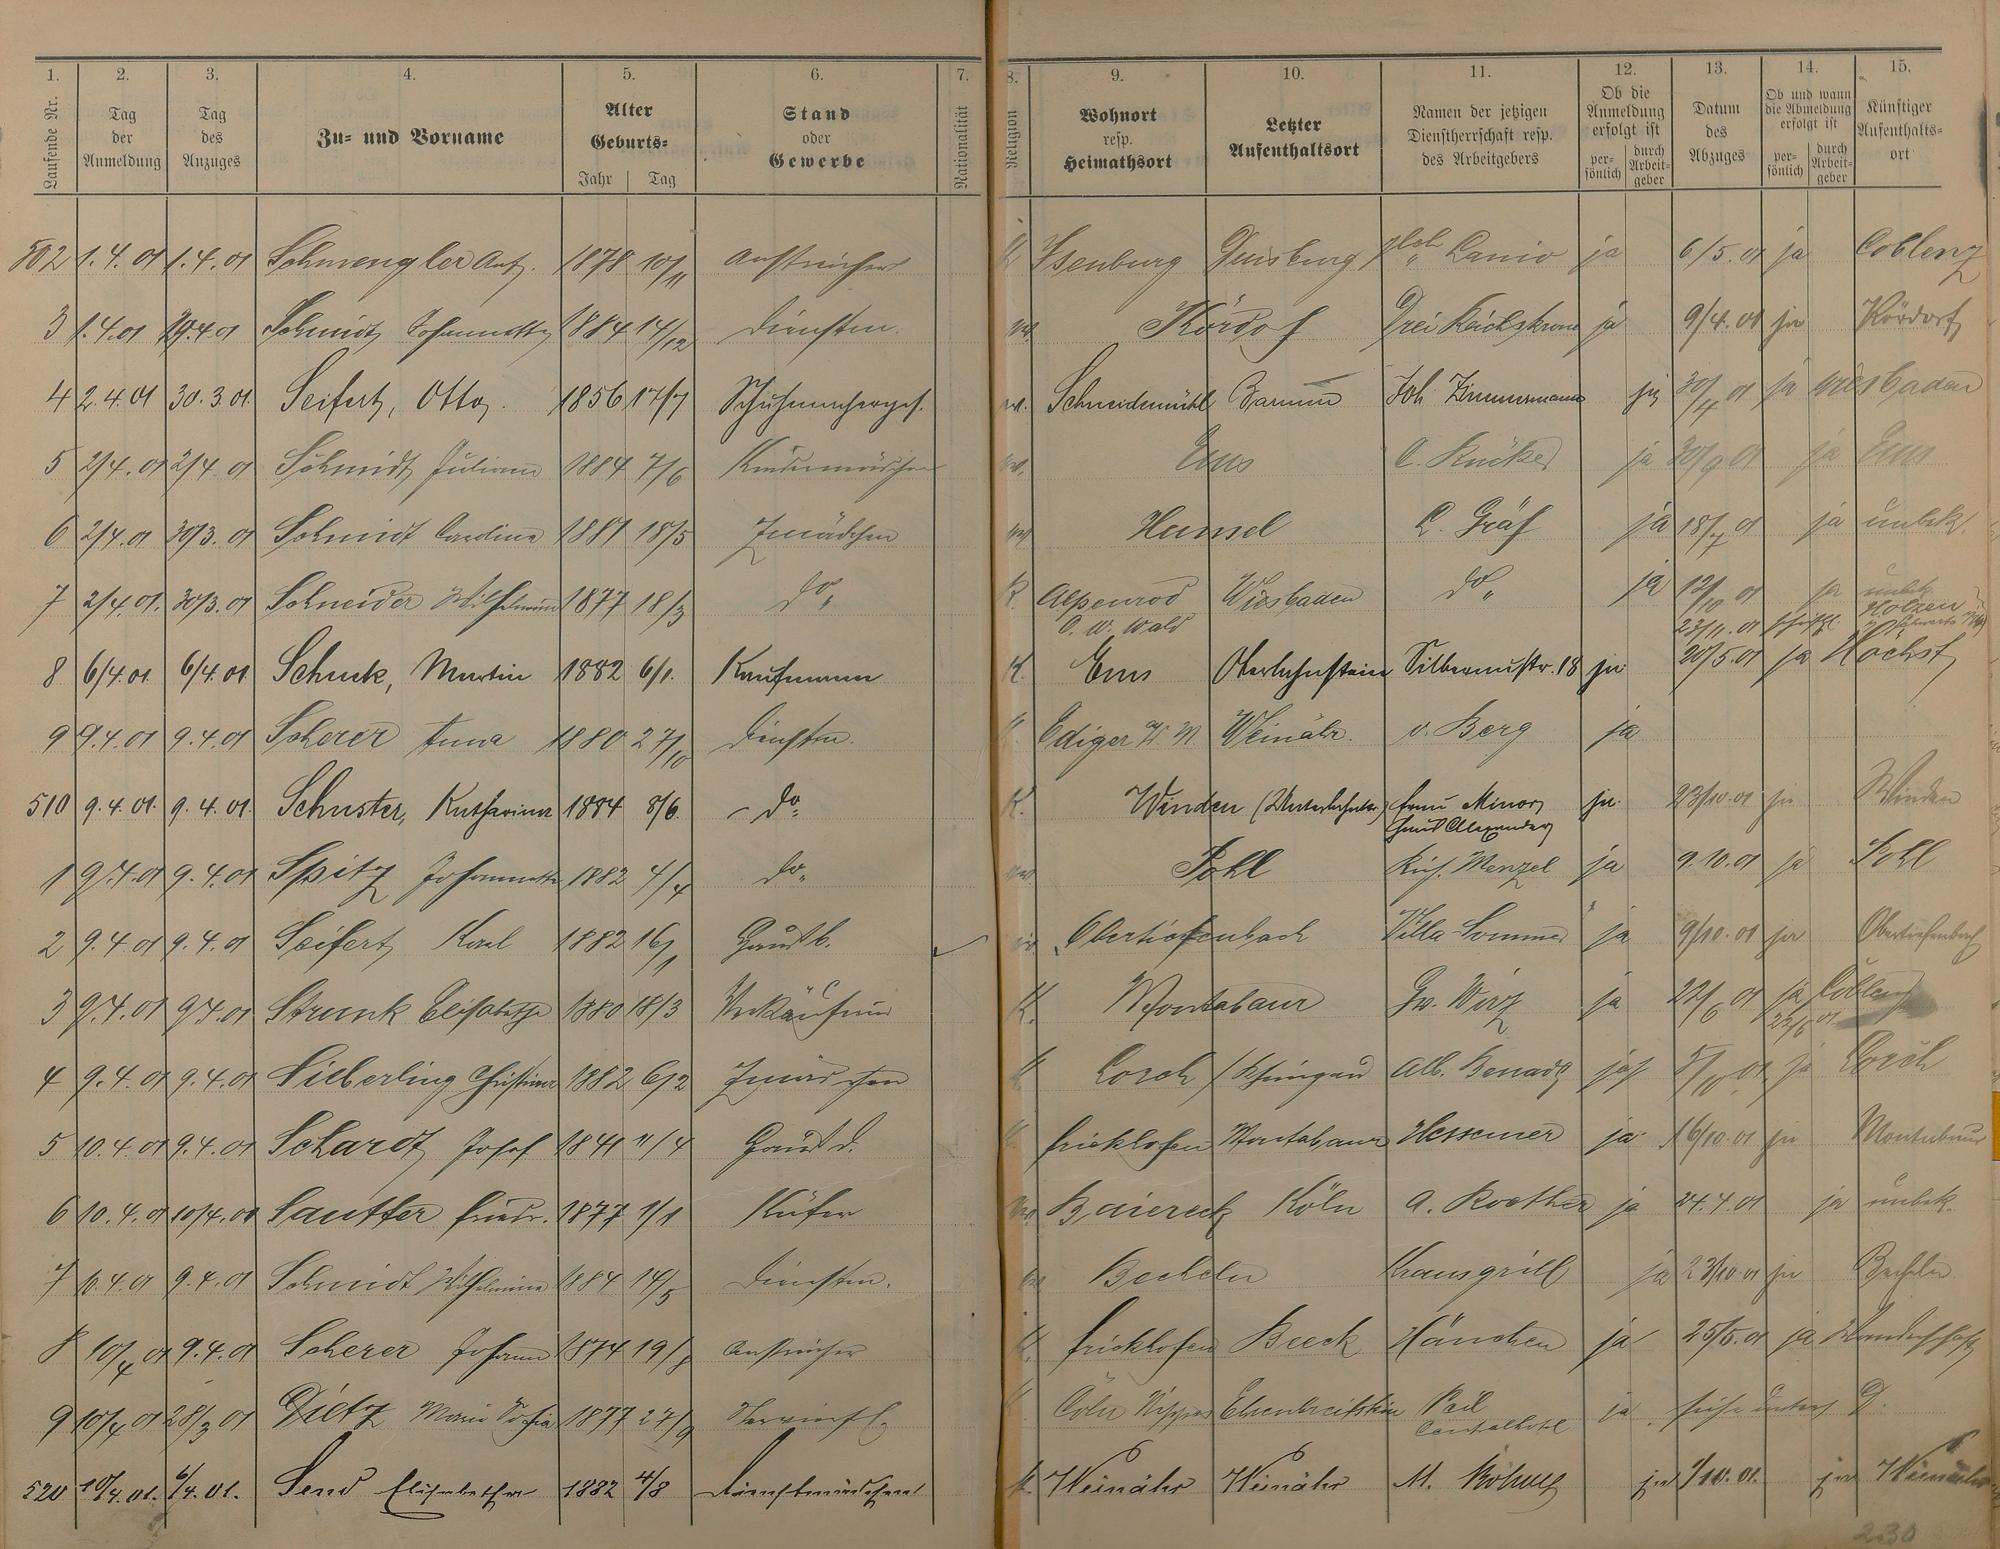 1. 2. 3. 4. 5. 6. 7. 8. 9. 10. 11. 12. 13. 14. 15.
Laufende Nr. | Tag der Anmeldung | Tag des Anzuges | Zu- und Vorname | Alter Geburts- Jahr Tag | Stand oder Gewerbe | Nationalität | Religion | Wohnort resp. Heimathsort | Letzter Aufenthaltsort | Namen der jetzigen Dienstherrschaft resp. des Arbeitgebers | Ob die Anmeldung erfolgt ist persönlich durch Arbeitgeber | Datum des Abzuges | Ob und wann die Abmeldung erfolgt ist persönlich durch Arbeitgeber | Künftiger Aufenthaltsort
502 1.4.01 1.4.01 Schwengler Ant. 1878 10/11 Anstreicher K Isenburg Duisburg Canio ja 6/5.01 ja Coblenz
3 1.4.01 Schmidt, Johannette 1884 14/12 Dienstm. ev. Kördorf Drei Reichskronen ja 9/4.01 ja Kördorf
4 2.4.01 30.3.01 Seifert, Otto 1856 17/7 Schuhmacherges. ev. Schneidemühl Barmen Joh. Zimmermann ja 30/4 01 ja Wiesbaden
5 2/4.01 2/4 01 Schmidt Juliane 1884 7/6 Kindermädchen ev. Ems C. Rücker ja 30/9 01 ja Ems
6 2/4.01 30/3.01 Schmidt Caroline 1881 18/5 Zmädchen ev Hunsel L. Gräf ja 18/7 01 ja unbek.
7 2/4.01. 30/3.01 Schneider Wilhelmine 1877 18/3 do K. Alpenrod Wiesbaden do ja 12/10 01 ja unbek.
O. W. Wald 23/11.01 Holzen
8 6/4.01 6/4.01 Schuck, Martin 1882 6/1. Kaufmann K. Ems Oberlahnstein Silberaustr. 18 ja 20/5.01 ja Höchst
9 9.4.01 9.4.01 Scherer Anna 1880 27/10 Dienstm. Ediger Weinähr. v. Berg ja
510 9.4.01. 9.4.01. Schuster, Katharina 1884 8/6. do K. Winden (Unterlahnkr.) Frau Minor ja. 23/10.01 ja Winden
Alexander
1 9.4.01 9.4.01 Spitz Johannette 1882 4/4 do ev. Pohl Menzel ja 9.10.01 ja Pohl
2 9.4.01 9.4.01 Seifert Karl 1882 16/1 Hausb. ev Obertiefenbach Villa Sommer ja 9/10.01 ja Obertiefenbach
3 9.4.01 9.4.01 Strunk Elisabeth 1880 18/3 Verkäuferin K. Montabaur Gw. Wirz ja 22/6 01 ja Coblenz
22/6 01
4 9.4.01 9.4.01 Sieberling Christine 1882 6/2 Zmädchen Lorch /Rheingau Alb. ja 5/10.01 ja Lorch
5 10.4.01 9.4.01 Schardt Josef 1841 11/4 Hausd. Frickhofen Montabaur Hessemer ja 16/10.01 ja Montabaur
6 10.4.01 10/4.01 Sautter Friedr. 1877 1/1 Küfer ev Baiereck Köln A. Roether ja 24.4.01 ja unbek.
7 10.4.01 9.4.01 Schmidt Wilhelmine 1884 14/5 Dienstm. ev Becheln Kransgrill ja 23/10.01 ja Becheln
8 10/4 01 9.4.01 Scherer Johann 1874 19/8 Anstreicher K. Frickhofen Beeck Hänchen ja 25/5.01 ja Wanderschaft
9 10/4 01 28/3 01 Dietz Maria Sofia 1877 27/9 Cöln Nippes Ehrenbreitstein ja siehe unter D.
520 10/4.01. 6/4.01. Send Elisabetha 1882 4/8 Dienstmädchen K. Weinähr Weinähr M. ja 1/10.01. ja Weinähr
230